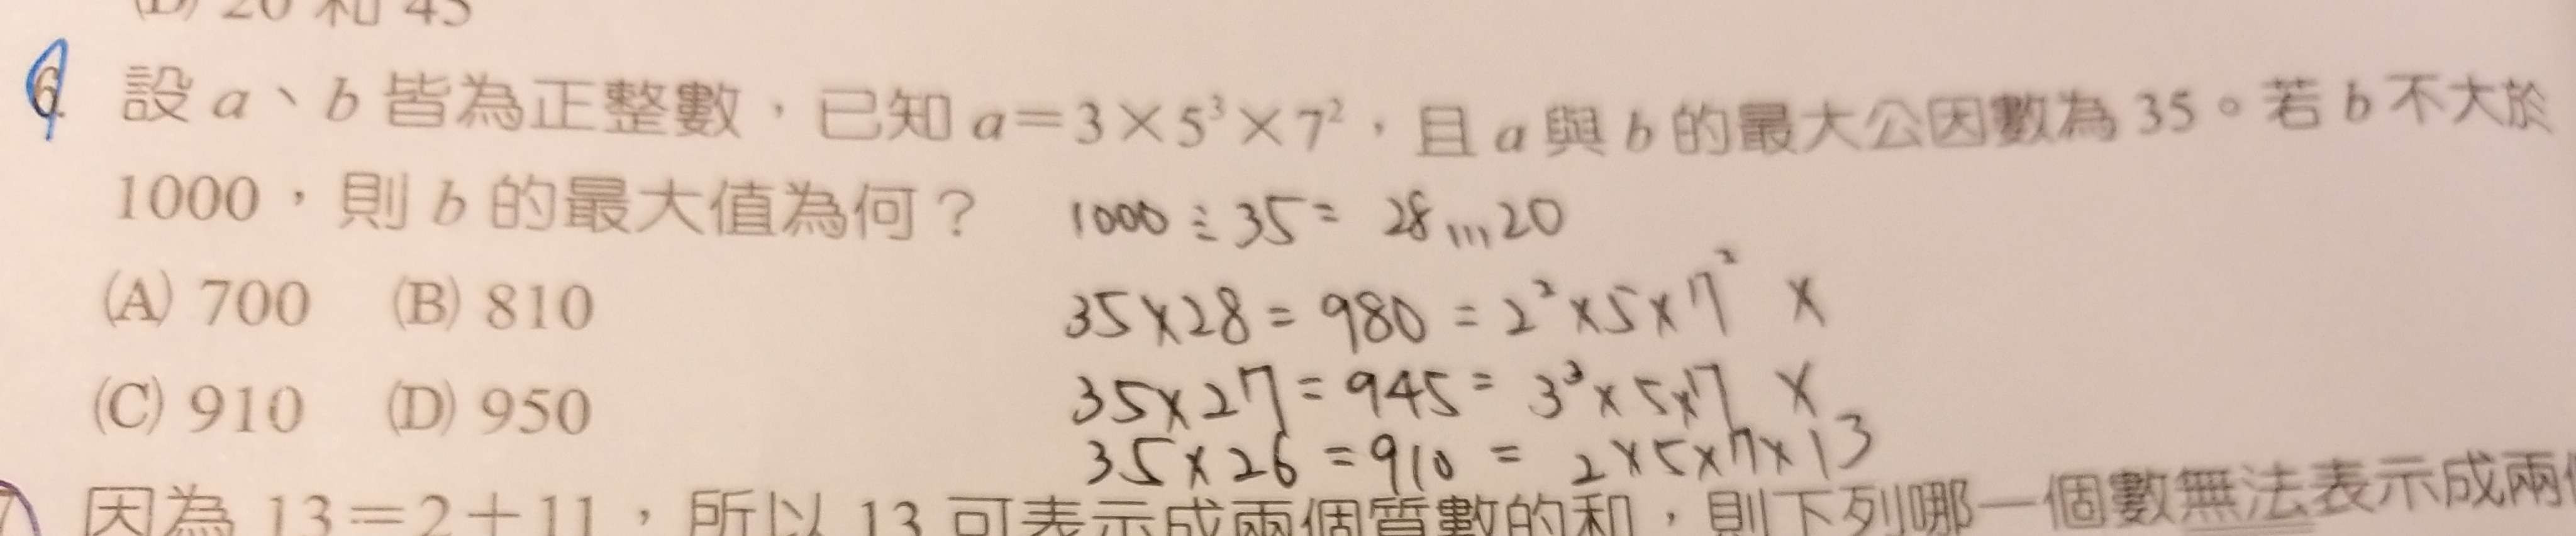 (D) 20 和 45
6. 設 a、b 皆為正整數，已知 a＝3×5³×7²，且 a 與 b 的最大公因數為 35。若 b 不大於
1000，則 b 的最大值為何？ 1000÷35= 28...20
(A) 700 (B) 810 35×28=980=2²×5×7² ×
(C) 910 (D) 950 35×27=945=3³×5×7 ×
35×26=910=2×5×7×13
因為 13＝2＋11，所以 13 可表示成兩個質數的和，則下列哪一個數無法表示成兩